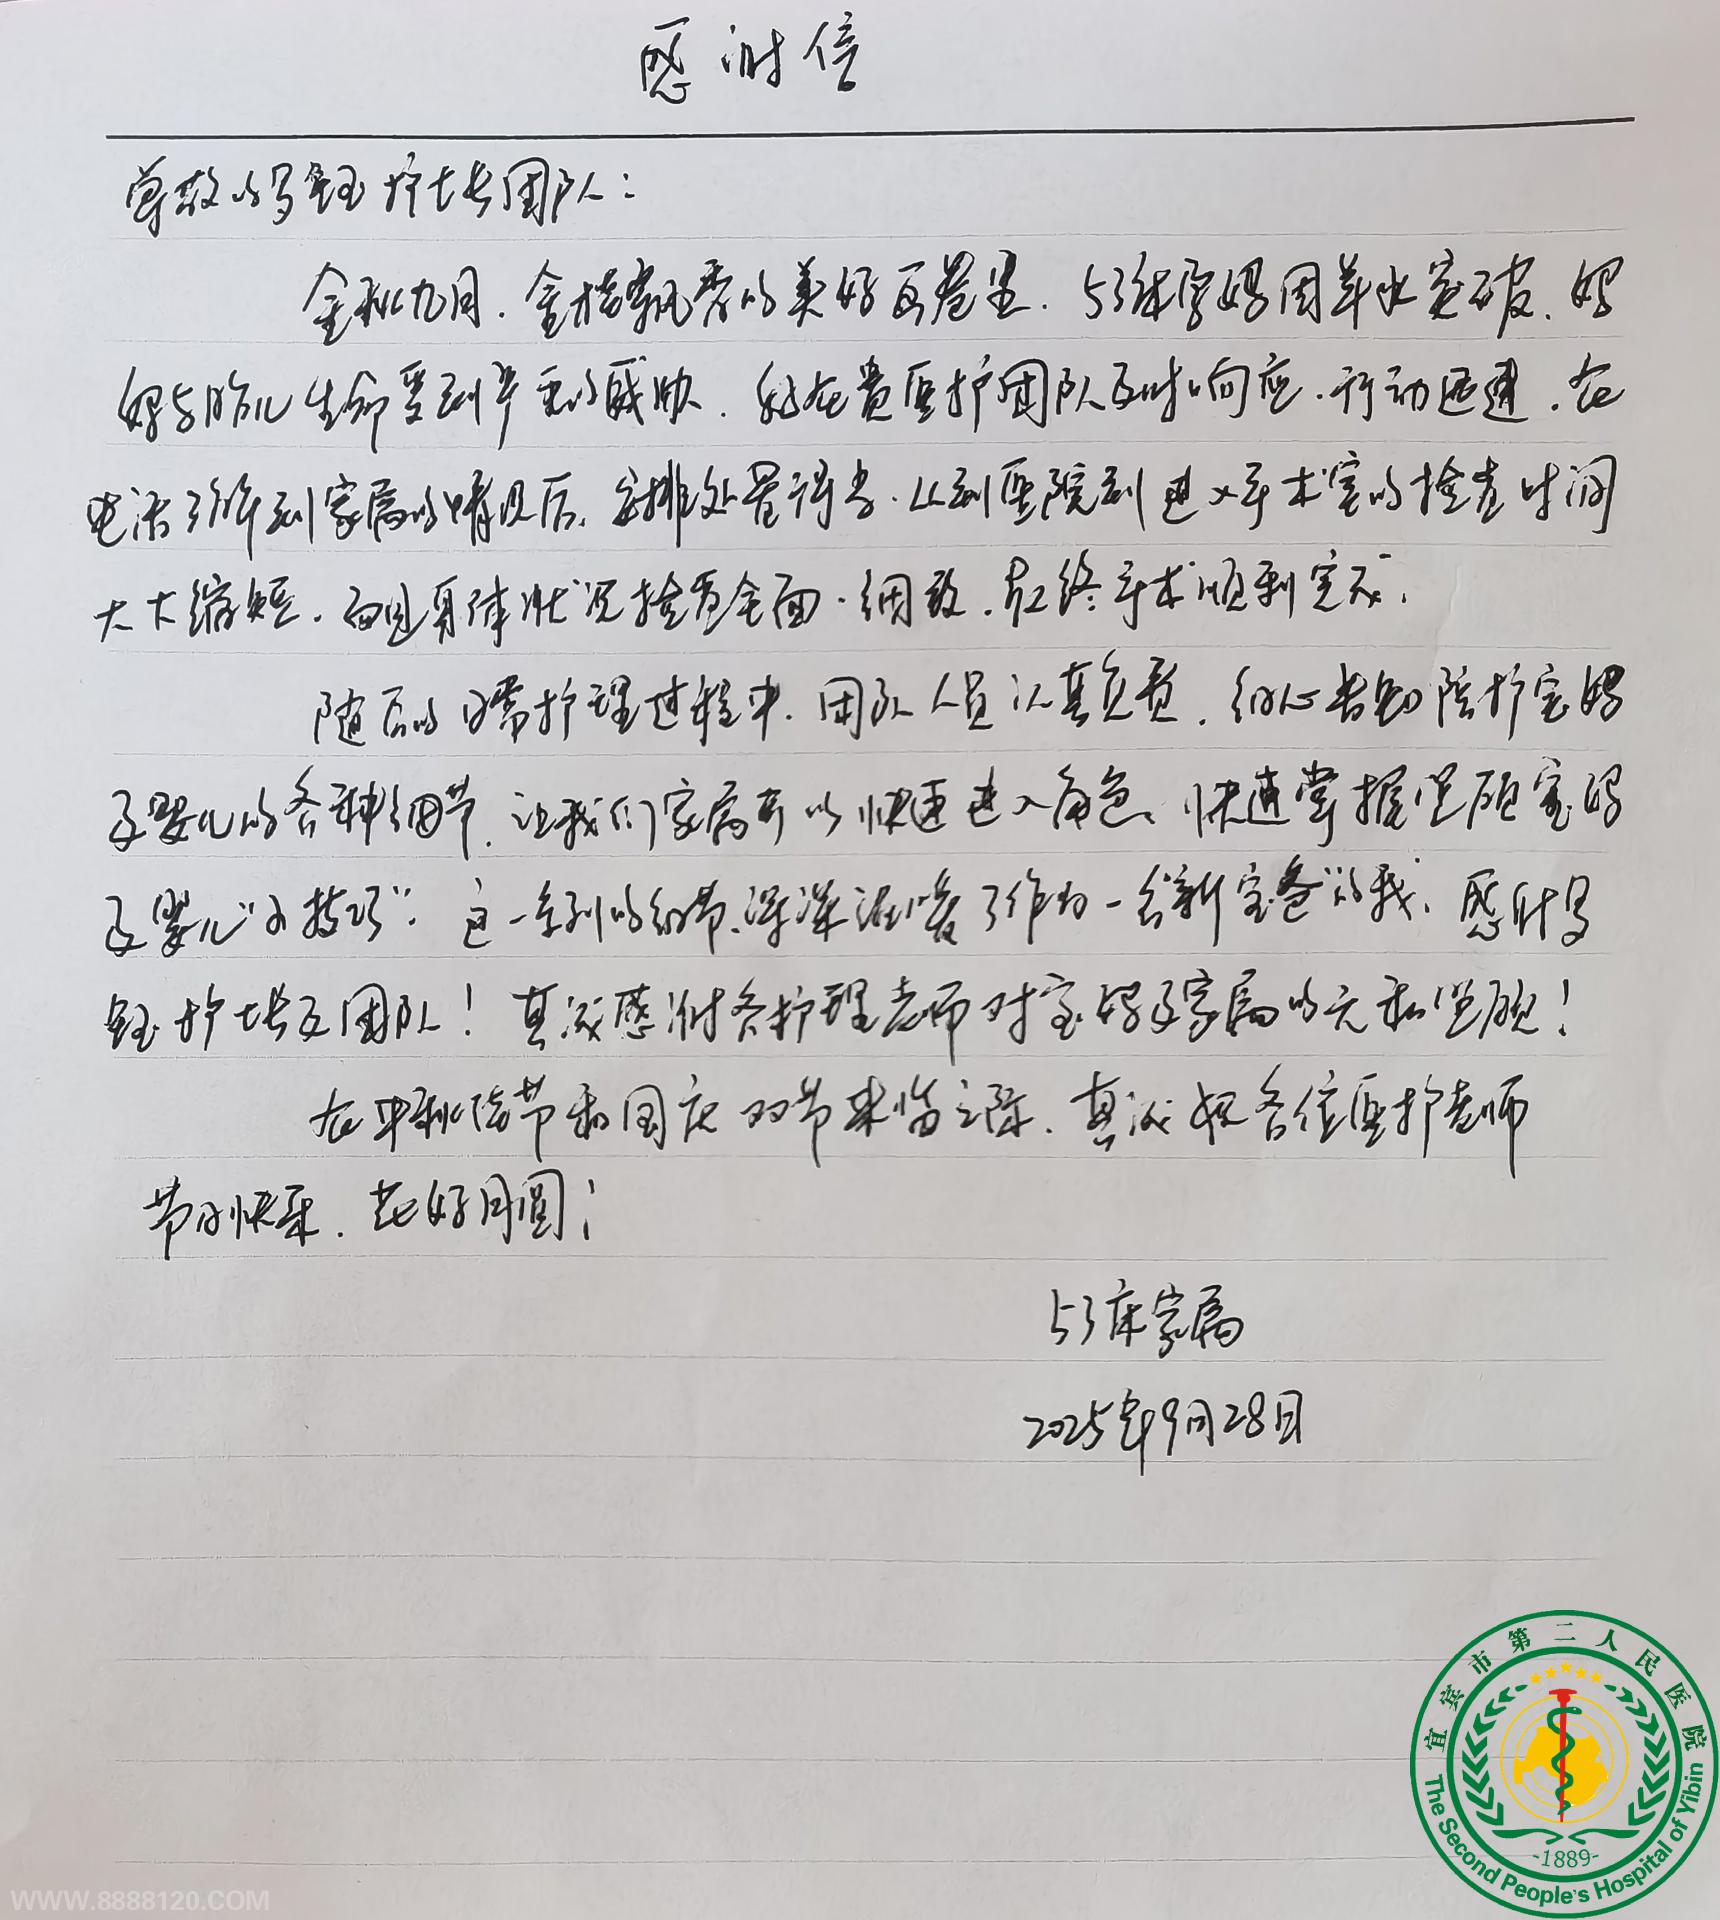 感谢信
尊敬的马钰护士长团队：
金秋九月，金桂飘香的美好画卷里，53床宝妈因羊水突破，妈
妈与胎儿生命受到严重的威胁，幸在贵医护团队及时响应，行动迅速，在
电话了解到家属的情况后，安排处置得当，从到医院到进入手术室的检查时间
大大缩短，而且身体状况检查全面、细致，最终手术顺利完成。
随后的日常护理过程中，团队人员认真负责，细心告知陪护宝妈
及婴儿的各种细节，让我们家属可以快速进入角色，快速掌握照顾宝妈
及婴儿“小技巧”。这一系列的细节，深深温暖了作为一名新“宝爸”的我，感谢马
钰护士长及团队！真诚感谢各护理老师对宝妈及家属的无私照顾！
在中秋佳节和国庆双节来临之际，真诚祝各位医护老师
节日快乐，花好月圆！
53床家属
2025年9月28日
宜宾市第二人民医院
The Second People's Hospital of Yibin
-1889-
WWW.8888120.COM